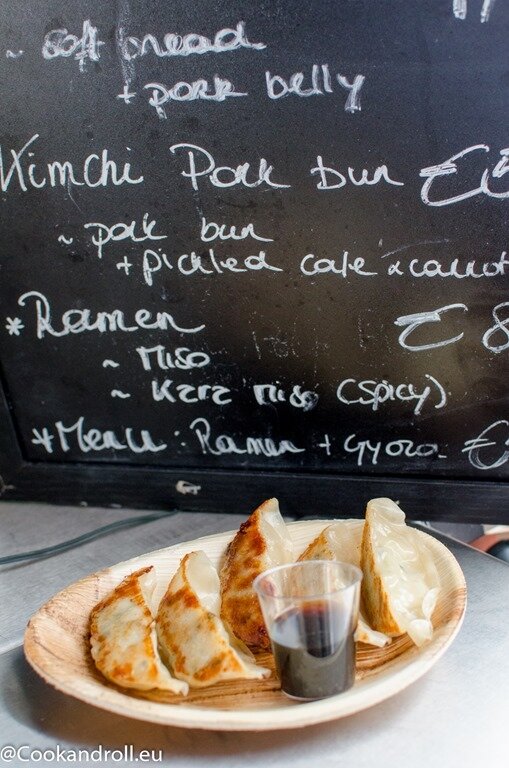 ~ soft bread
+ pork belly
Kimchi Pork bun €5
~ pork bun
+ pickled cale & carrot
* Ramen €8
~ Miso
~ Kara Miso (spicy)
* Menu: Ramen + Gyoza €
@Cookandroll.eu